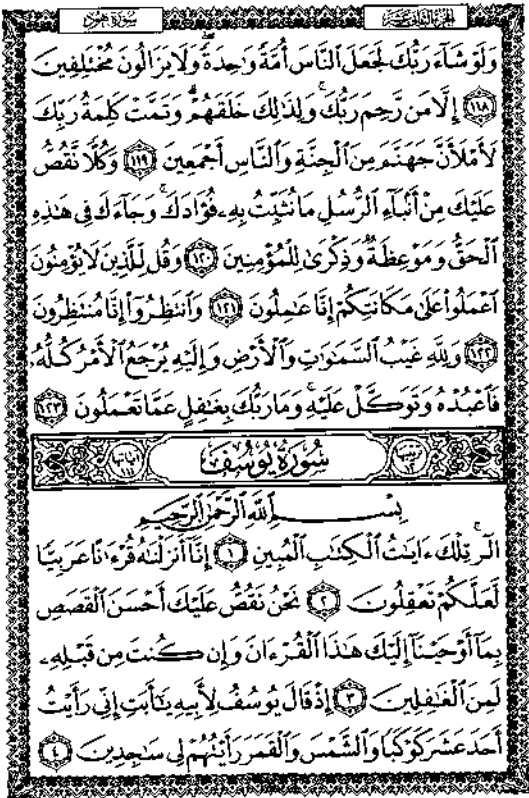 الجزء الثاني عشر سورة هود
وَلَوْ شَآءَ رَبُّكَ لَجَعَلَ ٱلنَّاسَ أُمَّةً وَٰحِدَةً ۖ وَلَا يَزَالُونَ مُخْتَلِفِينَ
﴿١١٨﴾ إِلَّا مَن رَّحِمَ رَبُّكَ ۚ وَلِذَٰلِكَ خَلَقَهُمْ ۗ وَتَمَّتْ كَلِمَةُ رَبِّكَ
لَأَمْلَأَنَّ جَهَنَّمَ مِنَ ٱلْجِنَّةِ وَٱلنَّاسِ أَجْمَعِينَ ﴿١١٩﴾ وَكُلًّا نَّقُصُّ
عَلَيْكَ مِنْ أَنۢبَآءِ ٱلرُّسُلِ مَا نُثَبِّتُ بِهِۦ فُؤَادَكَ ۚ وَجَآءَكَ فِى هَٰذِهِ
ٱلْحَقُّ وَمَوْعِظَةٌ وَذِكْرَىٰ لِلْمُؤْمِنِينَ ﴿١٢٠﴾ وَقُل لِّلَّذِينَ لَا يُؤْمِنُونَ
ٱعْمَلُوا۟ عَلَىٰ مَكَانَتِكُمْ إِنَّا عَٰمِلُونَ ﴿١٢١﴾ وَٱنتَظِرُوٓا۟ إِنَّا مُنتَظِرُونَ
﴿١٢٢﴾ وَلِلَّهِ غَيْبُ ٱلسَّمَٰوَٰتِ وَٱلْأَرْضِ وَإِلَيْهِ يُرْجَعُ ٱلْأَمْرُ كُلُّهُۥ
فَٱعْبُدْهُ وَتَوَكَّلْ عَلَيْهِ ۚ وَمَا رَبُّكَ بِغَٰفِلٍ عَمَّا تَعْمَلُونَ ﴿١٢٣﴾
سُورَةُ يُوسُفَ
بِسْمِ ٱللَّهِ ٱلرَّحْمَٰنِ ٱلرَّحِيمِ
الٓر ۚ تِلْكَ ءَايَٰتُ ٱلْكِتَٰبِ ٱلْمُبِينِ ﴿١﴾ إِنَّآ أَنزَلْنَٰهُ قُرْءَٰنًا عَرَبِيًّا
لَّعَلَّكُمْ تَعْقِلُونَ ﴿٢﴾ نَحْنُ نَقُصُّ عَلَيْكَ أَحْسَنَ ٱلْقَصَصِ
بِمَآ أَوْحَيْنَآ إِلَيْكَ هَٰذَا ٱلْقُرْءَانَ وَإِن كُنتَ مِن قَبْلِهِۦ
لَمِنَ ٱلْغَٰفِلِينَ ﴿٣﴾ إِذْ قَالَ يُوسُفُ لِأَبِيهِ يَٰٓأَبَتِ إِنِّى رَأَيْتُ
أَحَدَ عَشَرَ كَوْكَبًا وَٱلشَّمْسَ وَٱلْقَمَرَ رَأَيْتُهُمْ لِى سَٰجِدِينَ ﴿٤﴾